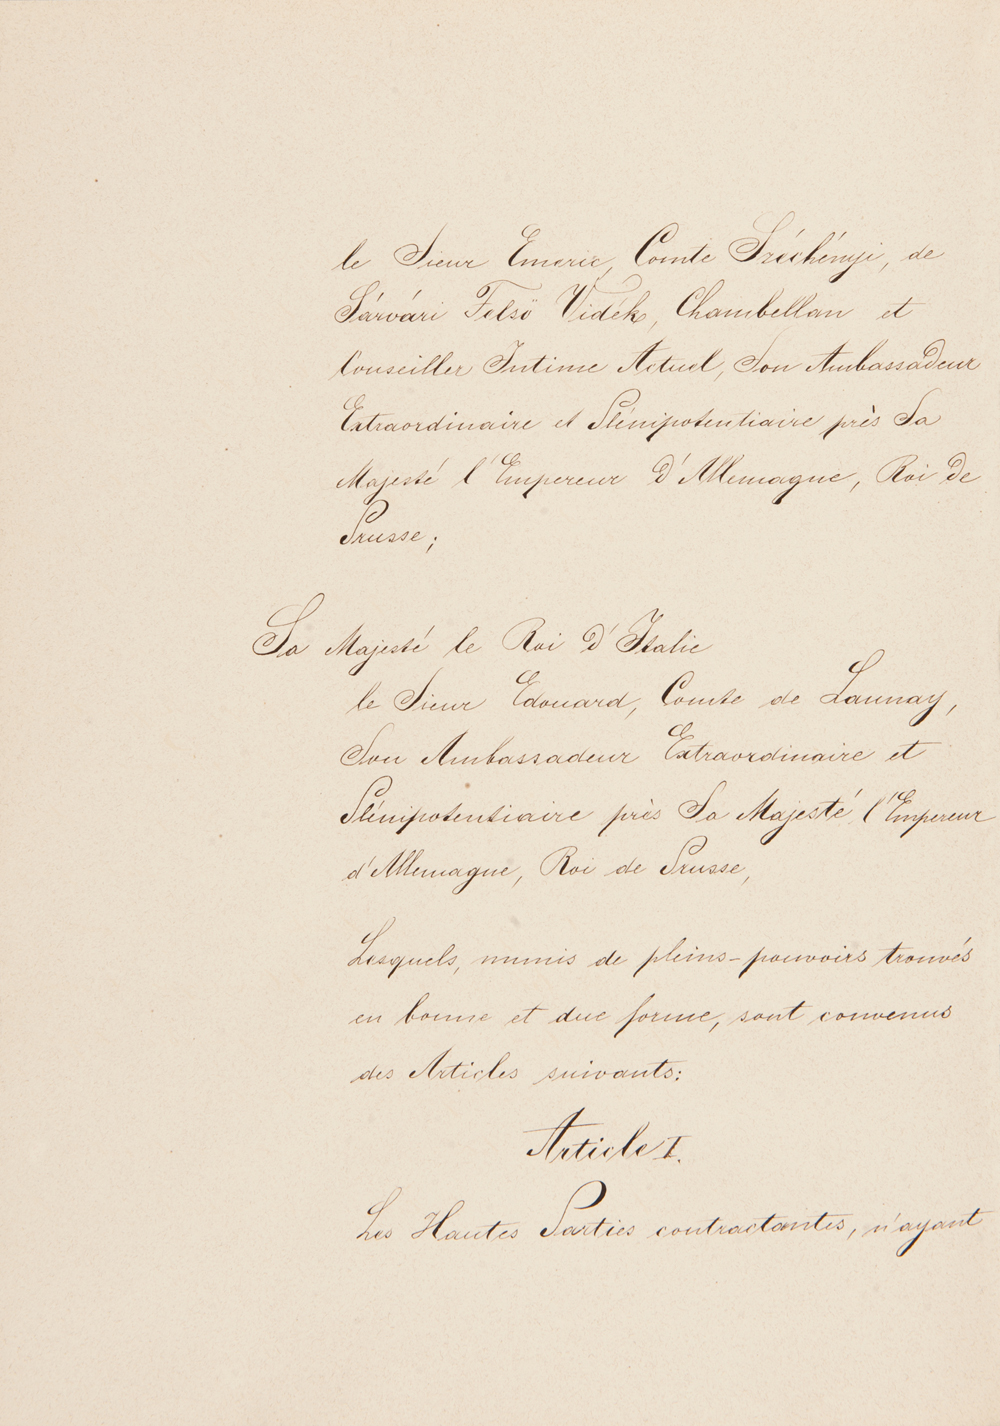 le Sieur Emeric, Comte Széchényi, de
Sárvári Felsö Vidék, Chambellan et
Conseiller Intime Actuel, Son Ambassadeur
Extraordinaire et Plénipotentiaire près Sa
Majesté l'Empereur d'Allemagne, Roi de
Prusse;
Sa Majesté le Roi d'Italie
le Sieur Edouard, Comte de Launay,
Son Ambassadeur Extraordinaire et
Plénipotentiaire près Sa Majesté l'Empereur
d'Allemagne, Roi de Prusse,
Lesquels, munis de pleins-pouvoirs trouvés
en bonne et due forme, sont convenus
des Articles suivants:
Article I.
Les Hautes Parties contractantes, n'ayant